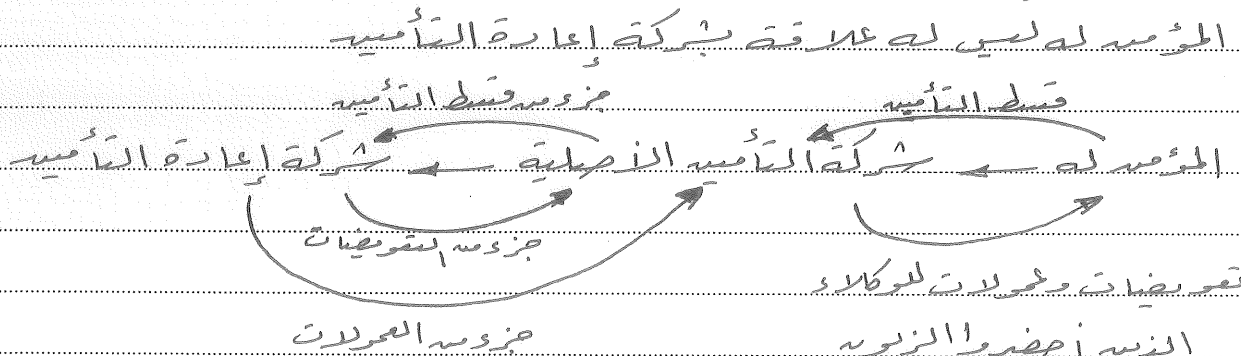 المؤمن له ليس له علاقة بشركة إعادة التأمين
قسط التأمين جزء من قسط التأمين
المؤمن له ← شركة التأمين الأصلية ← شركة إعادة التأمين
جزء من التعويضات
تعويضات وعمولات للوكلاء
الذين أحضروا الزبون جزء من العمولات